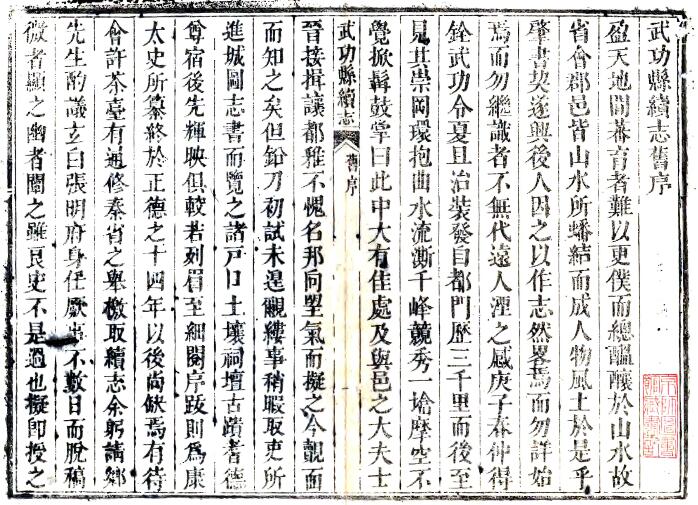 武功縣續志舊序
盈天地間蕃育者難以更僕而總醞釀於山水故
省會郡邑皆山水所蟠結而成人物風土於是乎
肇書契遂興後人因之以作志然畧焉而勿詳始
焉而勿繼識者不無代遠人湮之感庚子春仲得
銓武功令夏且治裝發自都門歷三千里而後至
見其崇岡環抱曲水流澌千峰競秀一塔摩空不
覺掀髯鼓掌曰此中大有佳處及與邑之大夫士
武功縣續志 舊序
晉接揖讓都雅不愧名邦向朢氣而擬之今覿面
而知之矣但鉛刀初試未遑覼縷事稍暇取吏所
進城圖志書而覽之諸戸口土壤祠壇古蹟耆德
尊宿後先輝映俱較若列眉至細閱序跋則爲康
太史所纂終於正德之十四年以後尚缺焉有待
會許茶臺有通修秦省之舉檄取續志余躬請鄉
先生酌議玄白張明府身任厥事不數日而脫稿
微者顯之幽者闡之雖良史不是過也擬卽授之